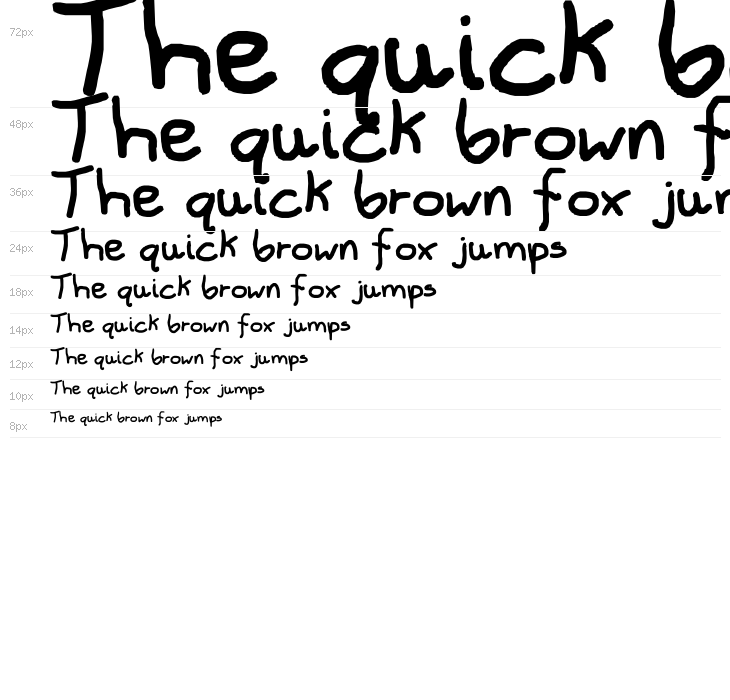 72px The quick b
48px The quick brown f
36px The quick brown fox jur
24px The quick brown fox jumps
18px The quick brown fox jumps
14px The quick brown fox jumps
12px The quick brown fox jumps
10px The quick brown fox jumps
8px The quick brown fox jumps